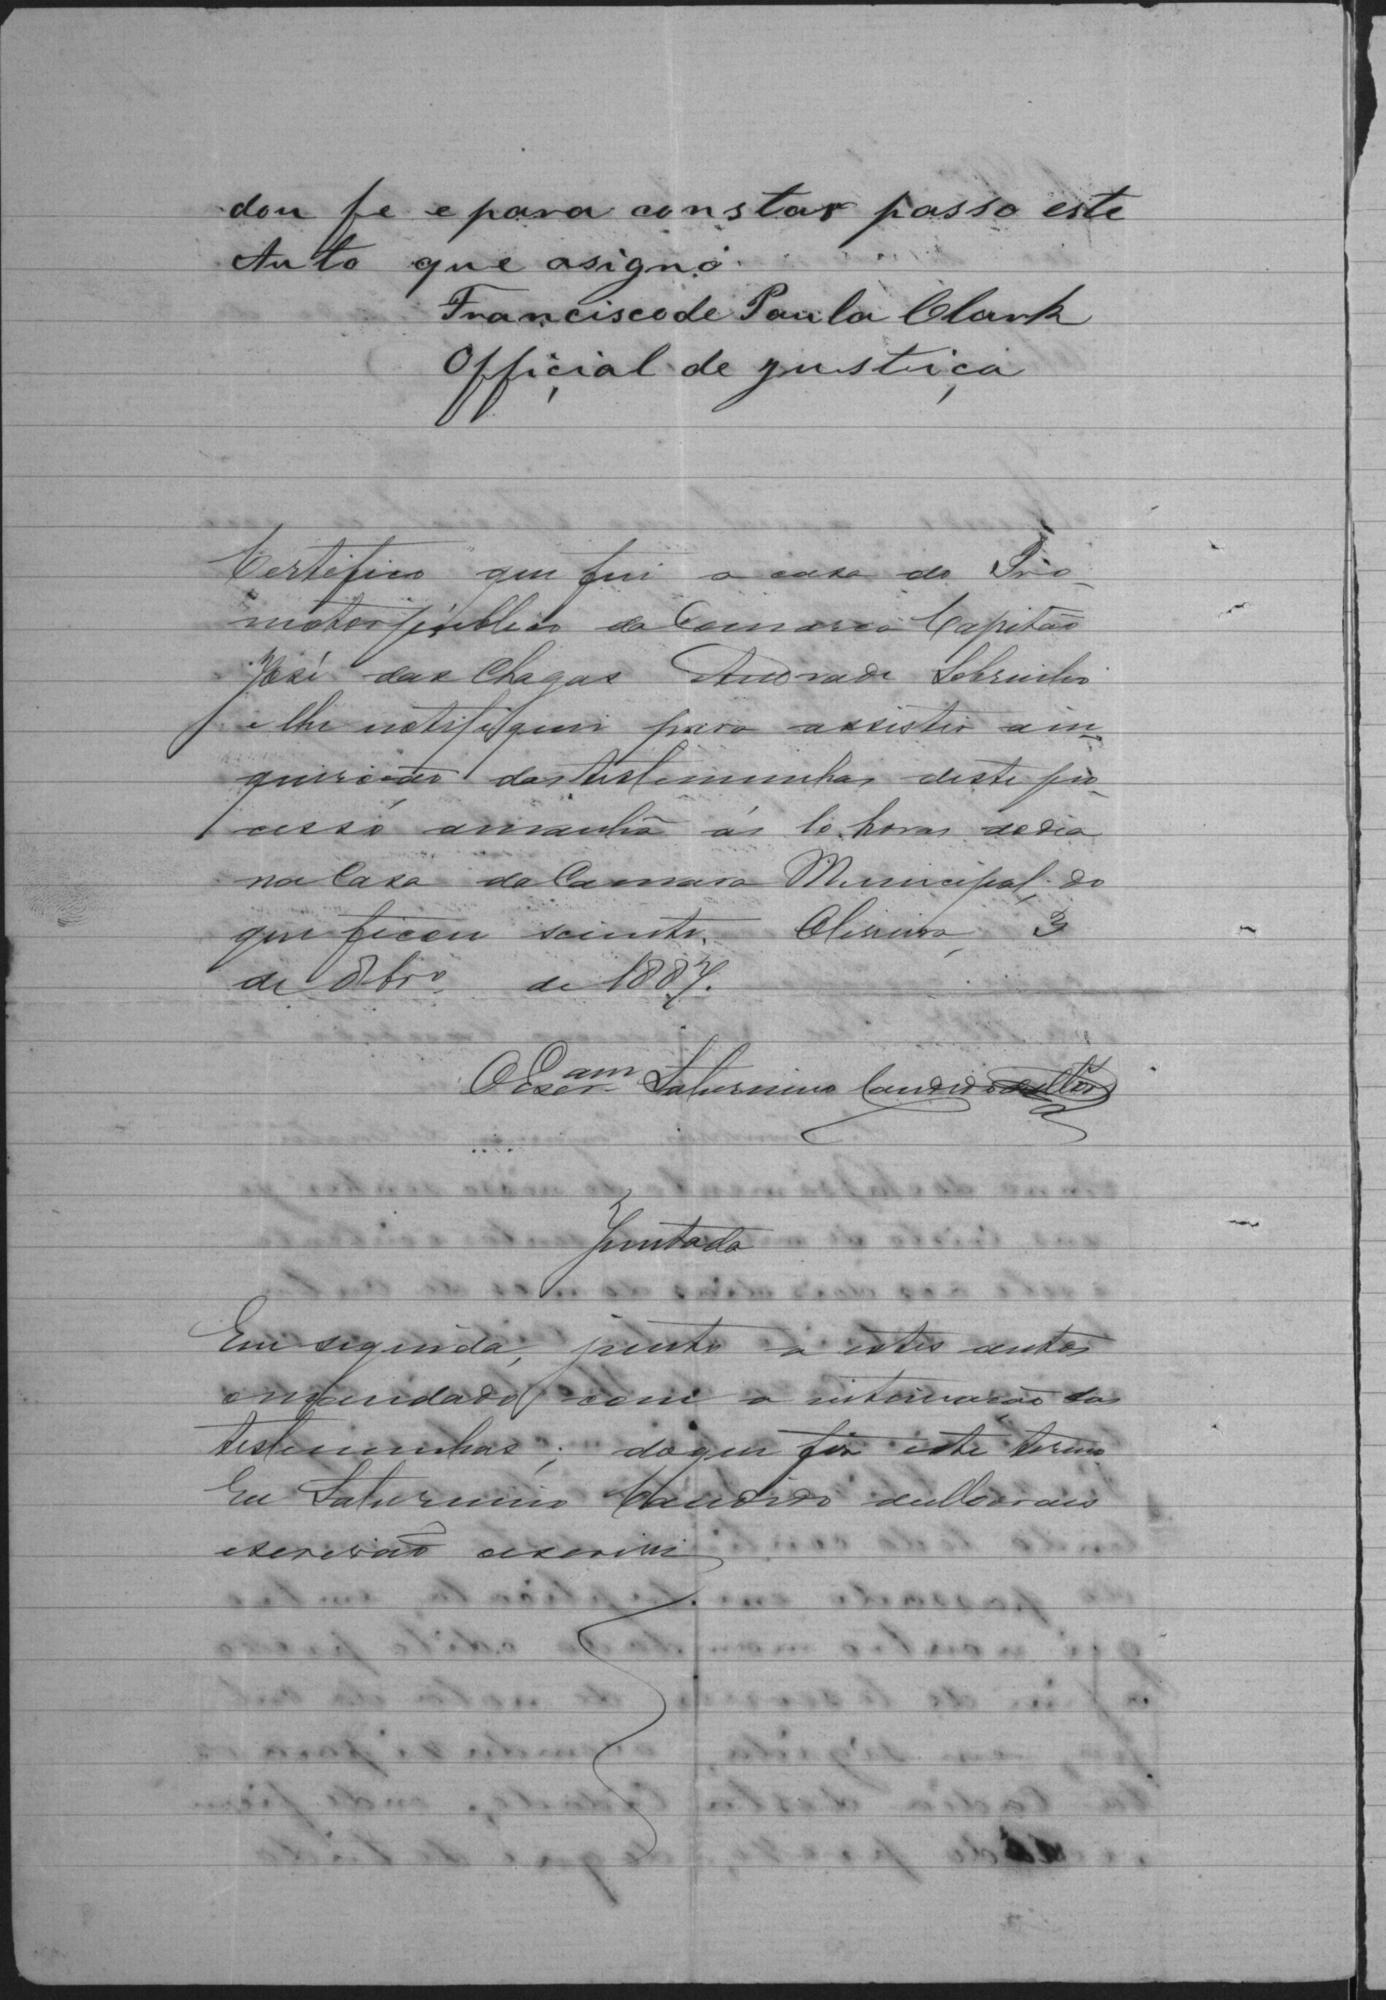 dou fe e para constar passo este
Auto que asigno.
Francisco de Paula Clark
Offiçial de justiça
Certifico que fui a casa do Pro-
motor publico da Comarca Capitão
José das Chagas Andrade Sobrinho
e lhe notifiquei para assistir a in-
quirição das testemunhas deste pro-
cesso amanhã ás 10 horas do dia
na Casa da Camara Municipal. do
que ficou sciente. Oliveira, 3
de 8brº de 1887.
O Escr.am Saturnino Candido
Juntada
Em seguida, junto a estes autos
o mandado com a intimação das
testemunhas; do que fiz este termo
Eu Saturnino Candido de Moraes
escrivão escrevi